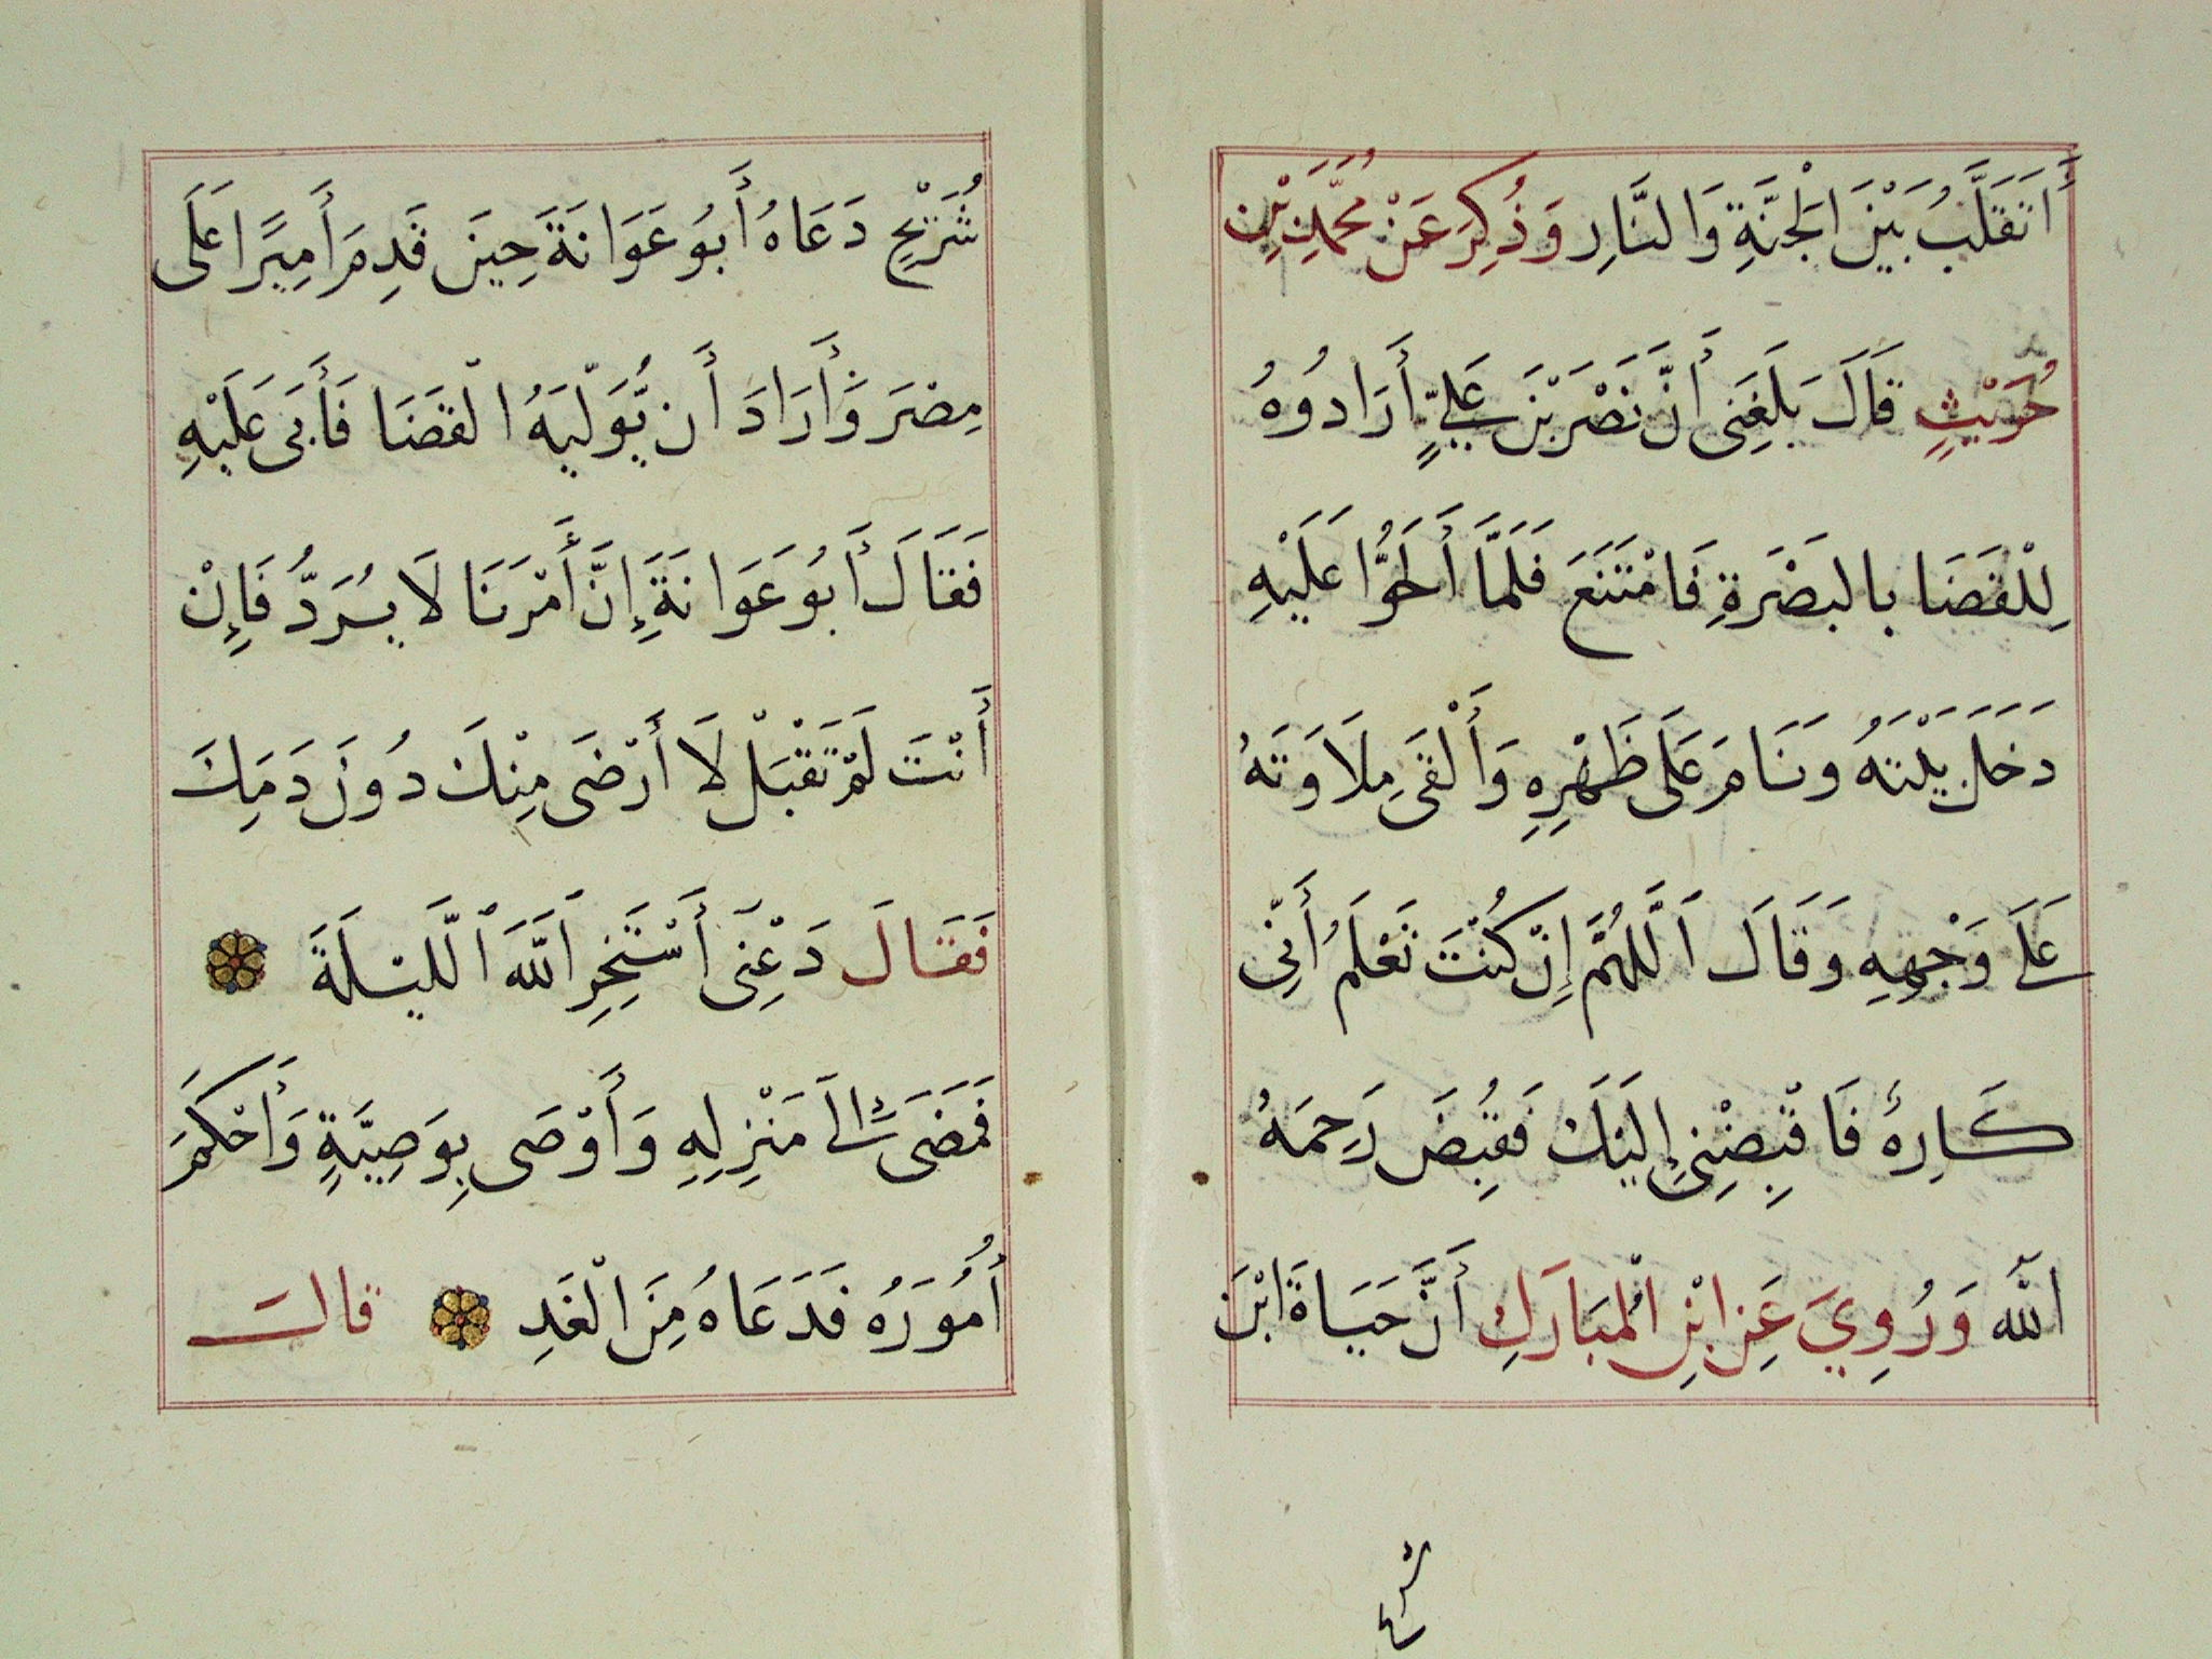 أَتَقَلَّبُ بَيْنَ الْجَنَّةِ وَالنَّارِ وَذُكِرَ عَنْ مُحَمَّدِ بْنِ
حُرَيْثٍ قَالَ بَلَغَنِى أَنَّ نَصْرَ بْنَ عَلِيٍّ أَرَادُوهُ
لِلْقَضَا بالبَصْرَةِ فَامْتَنَعَ فَلَمَّا أَلَحُّوا عَلَيْهِ
دَخَلَ بَيْتَهُ وَنَامَ عَلَى ظَهْرِهِ وَأَلْقَى مِلَاوَتَهُ
عَلَى وَجْهِهِ وَقَالَ اَللَّهُمَّ إِنْ كُنْتَ تَعْلَمُ أَنِّى
كَارِهٌ فَاقْبِضْنِى إِلَيْكَ فَقُبِضَ رَحِمَهُ
اللّٰه وَرُوِيَ عَنِ ابْنِ الْمُبَارَكِ أَنَّ حَيَاةَ ابْنَ
شرع
شُرَيْحٍ دَعَاهُ أَبُو عَوَانَةَ حِينَ قَدِمَ أَمِيرًا عَلَى
مِصْرَ وَأَرَادَ أَن يُّوَلِّيَهُ الْقَضَا فَأَبَى عَلَيْهِ
فَقَالَ أَبُو عَوَانَةَ إِنَّ أَمْرَنَا لَا يُرَدُّ فَإِنْ
أَنْتَ لَمْ تَقْبَلْ لَا أَرْضَى مِنْكَ دُونَ دَمِكَ
فَقَالَ دَعْنِى أَسْتَخِرِ اَللّٰهَ اَللَّيْلَةَ
فَمَضَى إِلَى مَنْزِلِهِ وَأَوْصَى بِوَصِيَّةٍ وَأَحْكَمَ
أُمُورَهُ فَدَعَاهُ مِنَ الْغَدِ قَالَ